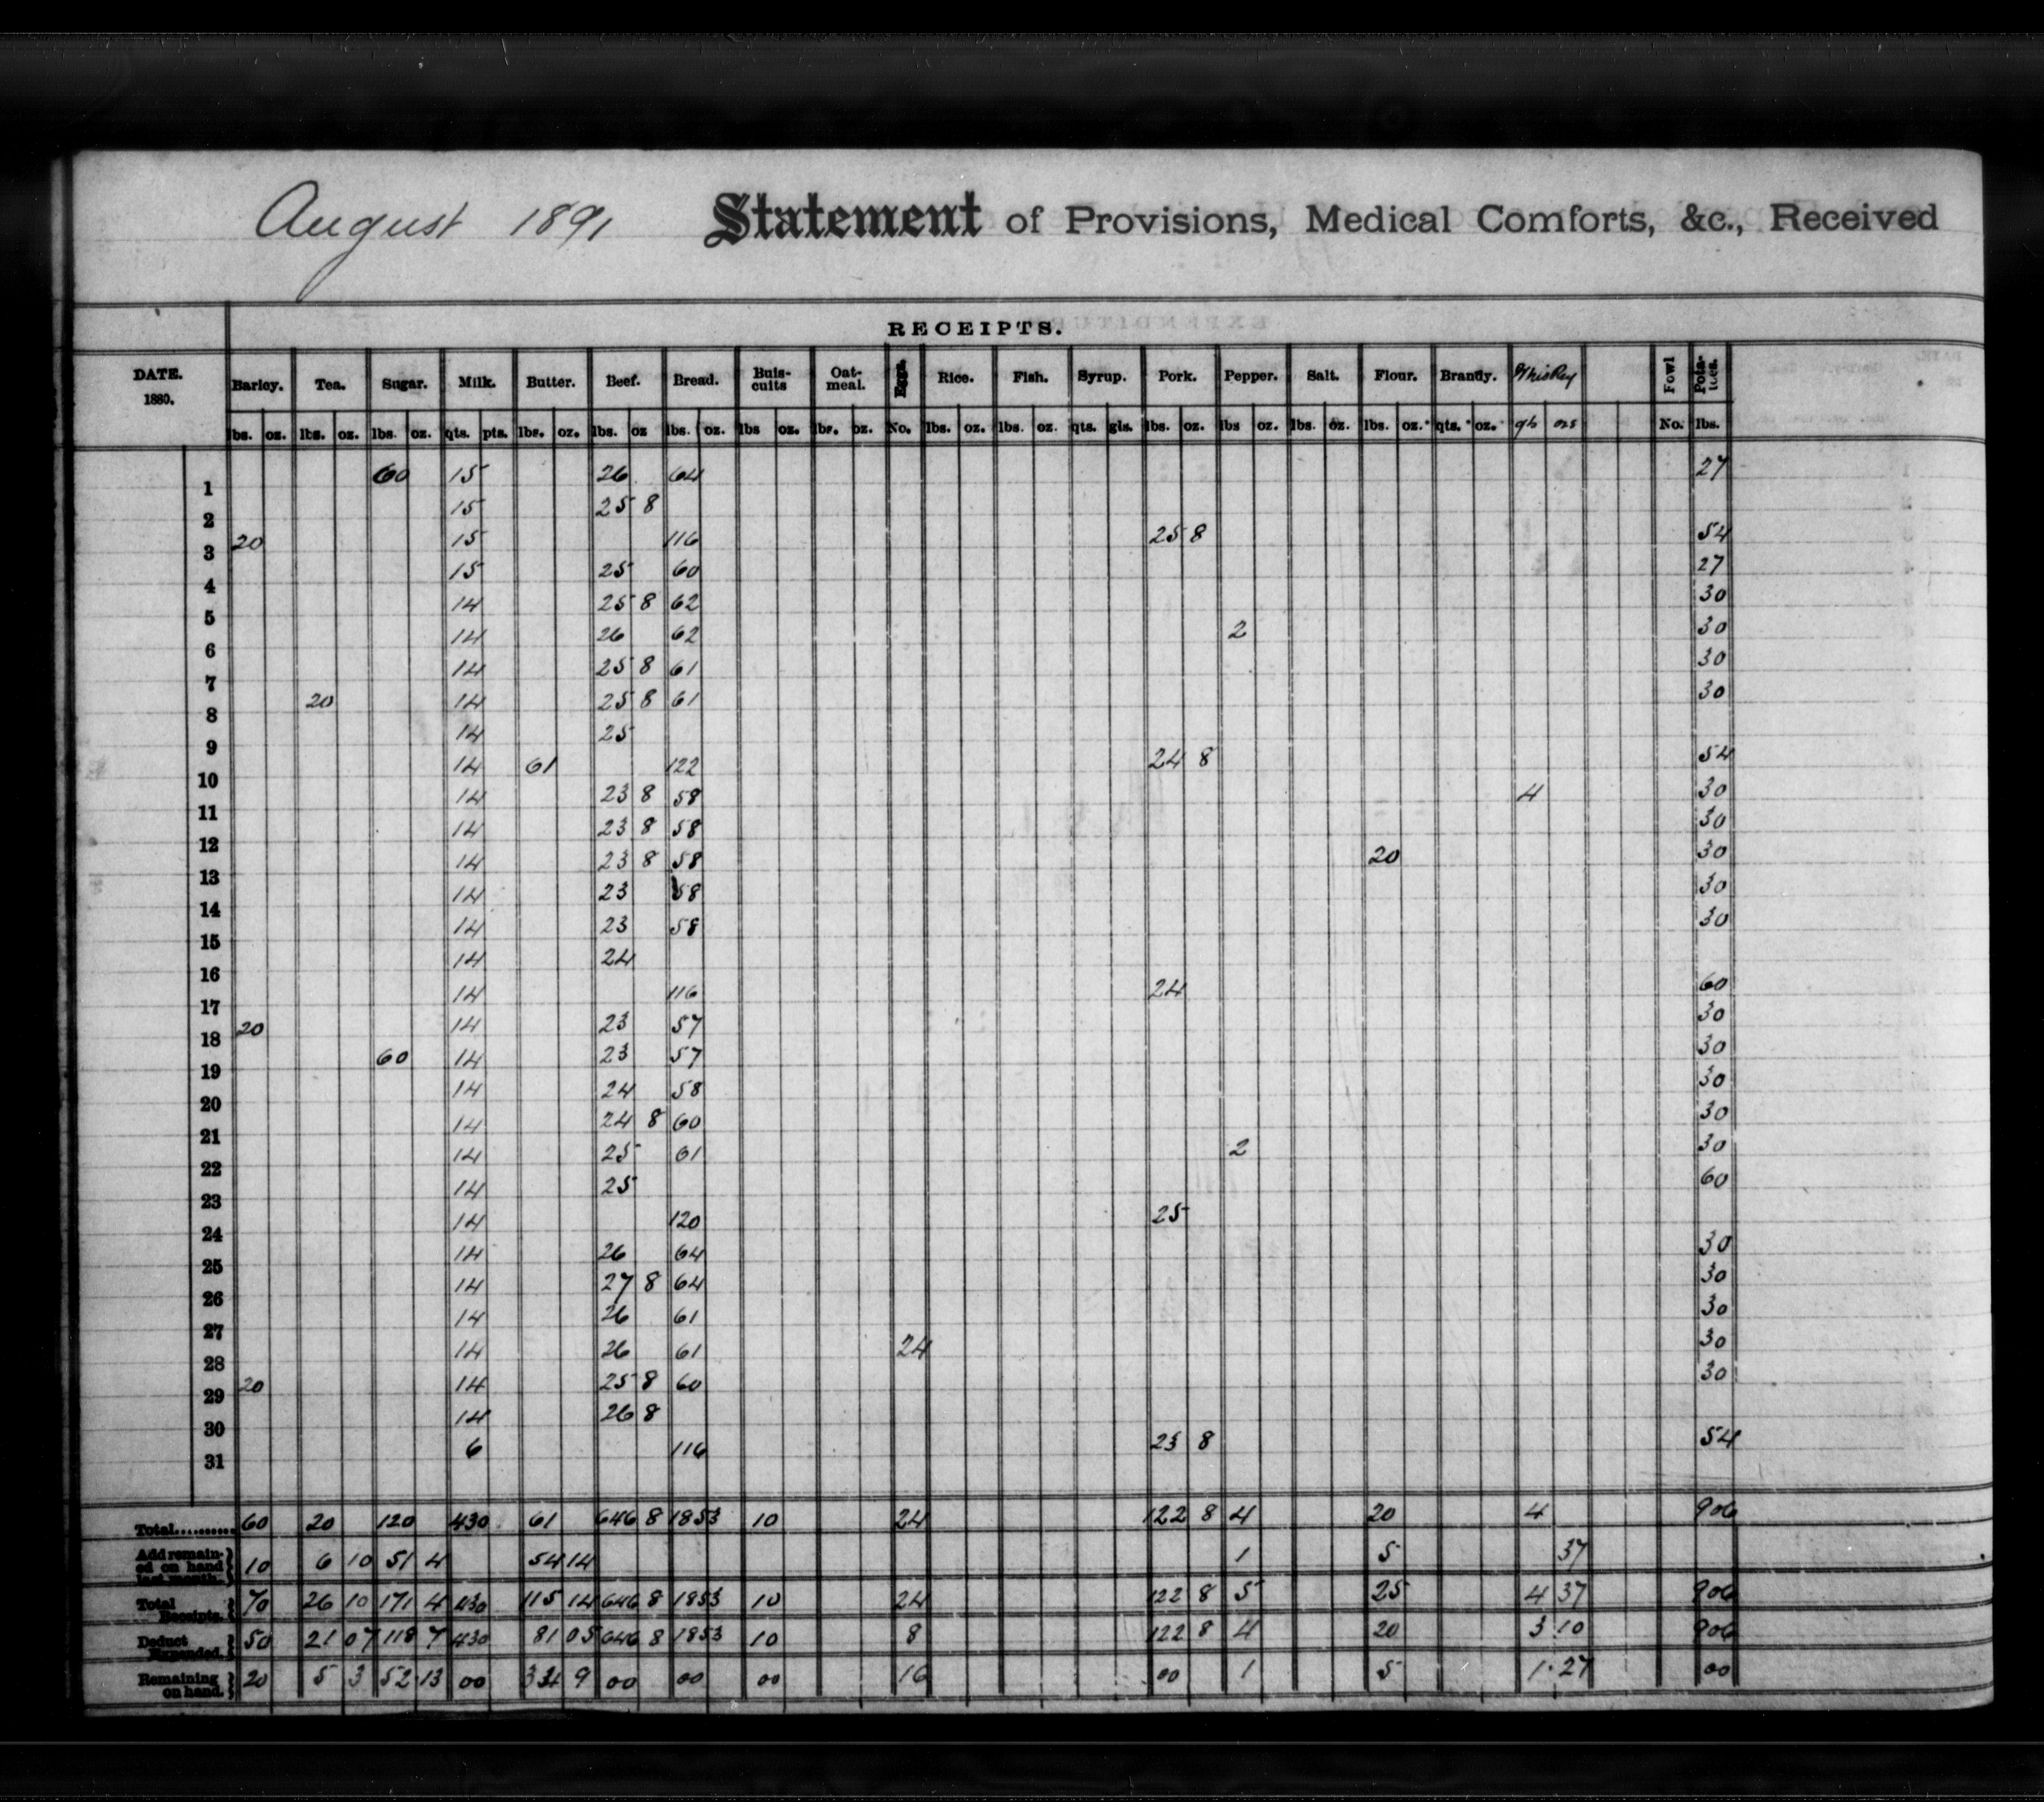 August 1891 Statement of Provisions, Medical Comforts, &c., Received
RECEIPTS.
DATE. 1880. Barley. Tea. Sugar. Milk. Butter. Beef. Bread. Buis-cuits Oat-meal. Eggs. Rice. Fish. Syrup. Pork. Pepper. Salt. Flour. Brandy. Whiskey Fowl Pota-toes.
lbs. oz. lbs. oz. lbs. oz. qts. pts. lbs. oz. lbs. oz lbs. oz. lbs oz. lbs. oz. No. lbs. oz. lbs. oz. qts. gls. lbs. oz. lbs oz. lbs. oz. lbs. oz. qts. oz. qts ozs No. lbs.
1 60 15 26 64 27
2 15 25 8
3 20 15 116 25 8 54
4 15 25 60 27
5 14 25 8 62 30
6 14 26 62 2 30
7 14 25 8 61 30
8 20 14 25 8 61 30
9 14 25
10 14 61 122 24 8 54
11 14 23 8 58 4 30
12 14 23 8 58 30
13 14 23 8 58 20 30
14 14 23 58 30
15 14 23 58 30
16 14 24
17 14 116 24 60
18 20 14 23 57 30
19 60 14 23 57 30
20 14 24 58 30
21 14 24 8 60 30
22 14 25 61 2 30
23 14 25 60
24 14 120 25
25 14 26 64 30
26 14 27 8 64 30
27 14 26 61 30
28 14 26 61 24 30
29 20 14 25 8 60 30
30 14 26 8
31 6 116 23 8 54
Total.......... 60 20 120 430 61 646 8 1853 10 24 122 8 4 20 4 906
Add remain-ed on hand last month. 10 6 10 51 4 54 14 1 5 37
Total Receipts. 70 26 10 171 4 430 115 14 646 8 1853 10 24 122 8 5 25 4 37 906
Deduct Expended. 50 21 07 118 7 430 81 05 646 8 1853 10 8 122 8 4 20 3 10 906
Remaining on hand. 20 5 3 52 13 00 34 9 00 00 00 16 00 1 5 1 27 00